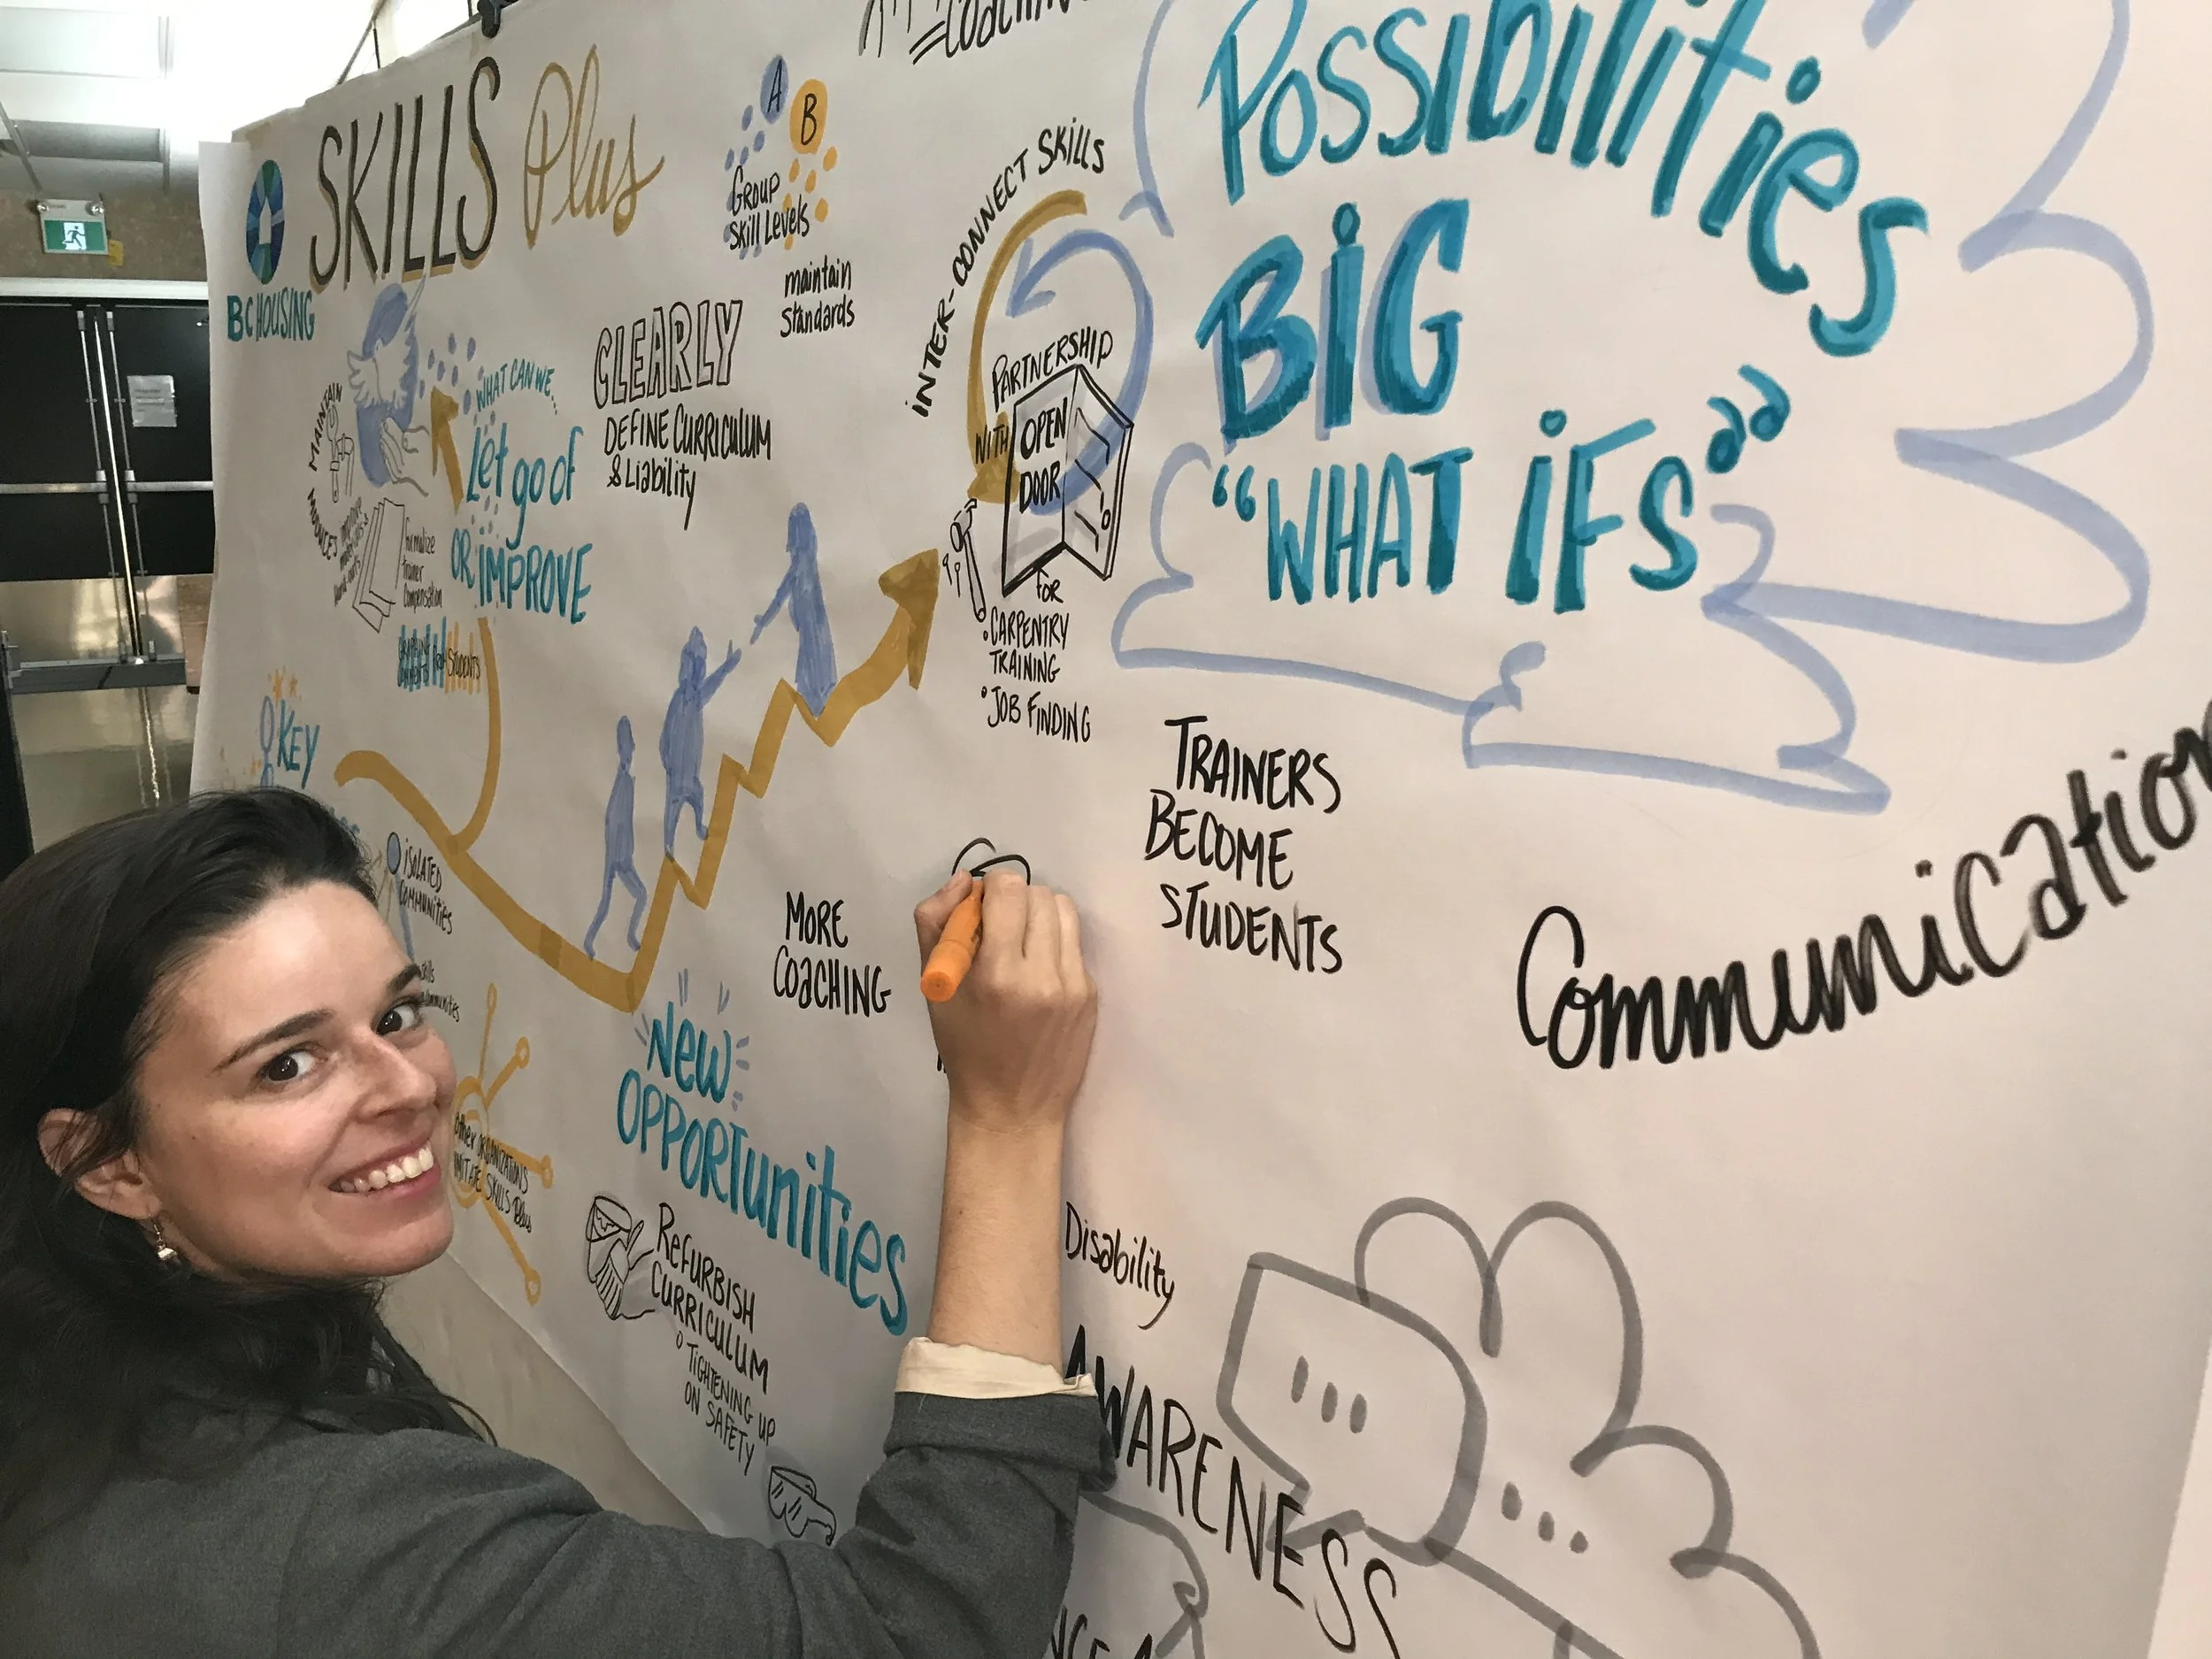 COACHING
SKILLS Plus
BC HOUSING
A
B
GROUP
SKILL LEVELS
maintain
standards
INTER-CONNECT SKILLS
PARTNERSHIP
WITH
OPEN
DOOR
FOR
• CARPENTRY
TRAINING
• JOB FINDING
POSSIBILITIES
BIG
“WHAT IFS”
MAINTAIN
formalize
trainer
compensation
WHAT CAN WE...
Let go of
OR IMPROVE
STUDENTS
CLEARLY
DEFINE CURRICULUM
& Liability
KEY
ISOLATED
COMMUNITIES
other ORGANIZATIONS
IMITATE SKILLS Plus
MORE
COACHING
TRAINERS
BECOME
STUDENTS
Communication
NEW
OPPORTUNITIES
REFURBISH
CURRICULUM
◦ TIGHTENING UP
ON SAFETY
Disability
AWARENESS